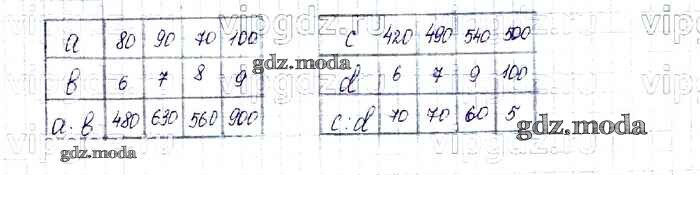 vipgdz.ru vipgdz.ru vipg
a 80 90 70 100
в 6 7 8 9
a · в 480 630 560 900
c 420 490 540 500
d 6 7 9 100
c : d 70 70 60 5
gdz.moda
gdz.moda
gdz.moda